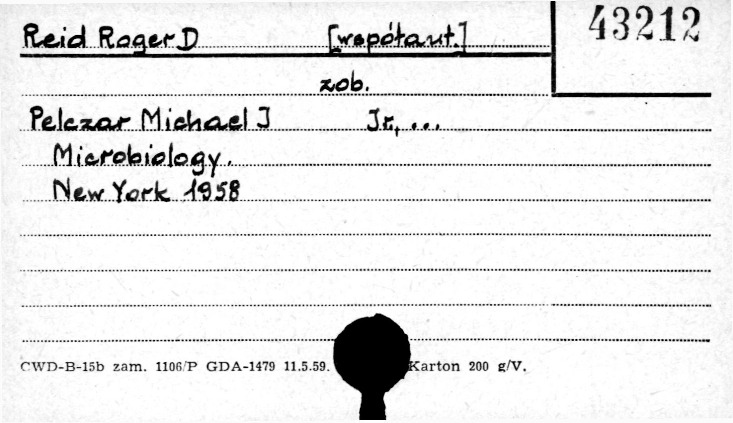 Reid Roger D [współaut.] 43212
zob.
Pelczar Michael J Jr, ...
Microbiology.
New York 1958
CWD-B-15b zam. 1106/P GDA-1479 11.5.59. Karton 200 g/V.